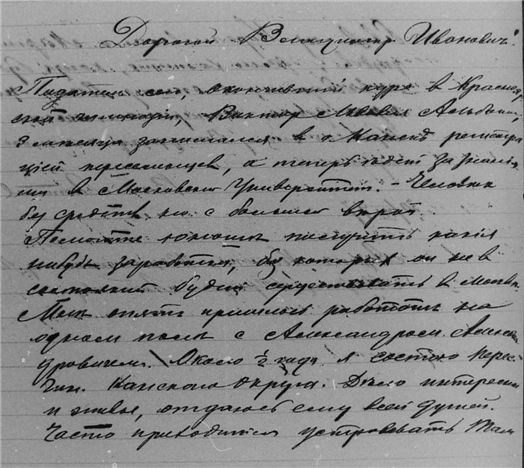 Дорогой Владимир Иванович!
Податель сего, окончивший курс в Красноя
ской гимназии, Виктор Львович
3 месяца занимался в г. Канске
цией переселенцев, а теперь едет за знани
ями в Московский Университет. – Человек
без средств, но с большой верой.
Помогите юноше получить какой
нибудь заработок, без которого он не в
состоянии будет существовать в Москве.
Мне опять пришлось работать на
одном поле с Александром Алексан
дровичем. Около ½ года я состою Перес.
Чин. Канского округа. Дело интересное
и живое, отдаюсь ему всей душой.
Часто приходится устраивать там